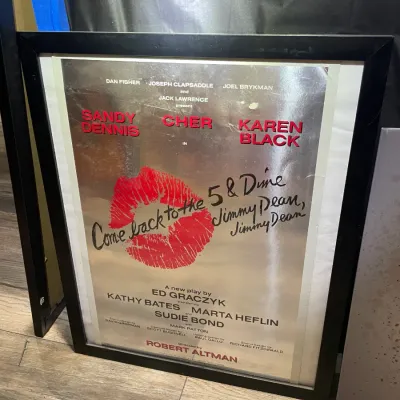 DAN FISHER JOSEPH CLAPSADDLE JOEL BRYKMAN
and
JACK LAWRENCE
present
SANDY DENNIS
CHER
KAREN BLACK
IN
Come back to the 5 & Dime
Jimmy Dean,
Jimmy Dean
A new play by
ED GRACZYK
KATHY BATES MARTA HEFLIN
SUDIE BOND
MARK PATTON
ROBERT ALTMAN